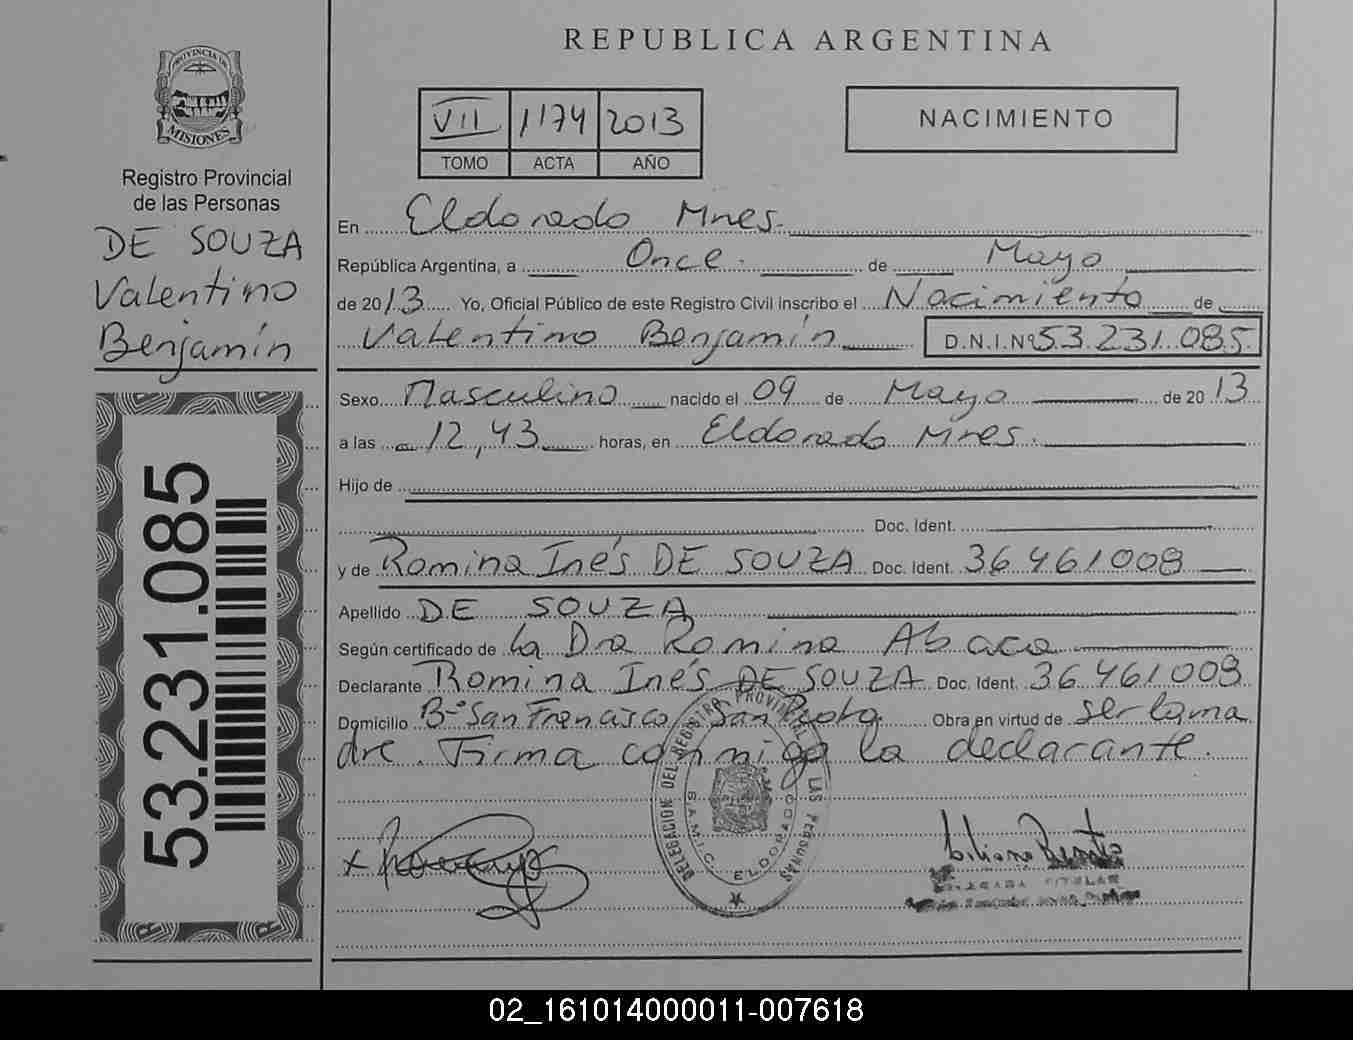 REPUBLICA ARGENTINA
PROVINCIA DE
MISIONES
Registro Provincial
de las Personas
DE SOUZA
Valentino
Benjamín
53.231.085
VII 1174 2013
TOMO ACTA AÑO
NACIMIENTO
En Eldorado Mnes.
República Argentina, a Once de Mayo
de 2013 Yo, Oficial Público de este Registro Civil inscribo el Nacimiento de
Valentino Benjamín D.N.I.Nº 53.231.085
Sexo Masculino nacido el 09 de Mayo de 2013
a las 12,43 horas, en Eldorado Mnes.
Hijo de
Doc. Ident.
y de Romina Inés DE SOUZA Doc. Ident. 36461009
Apellido DE SOUZA
Según certificado de la Dra Romina Abaca
Declarante Romina Inés DE SOUZA Doc. Ident. 36461009
Domicilio Bº San Francisco San Obra en virtud de ser la ma
dre. Firma conmigo la declarante.
DELEGACION DEL REGISTRO PROVINCIAL DE LAS PERSONAS
S.A.M.I.C. ELDORADO
TITULAR
02_161014000011-007618